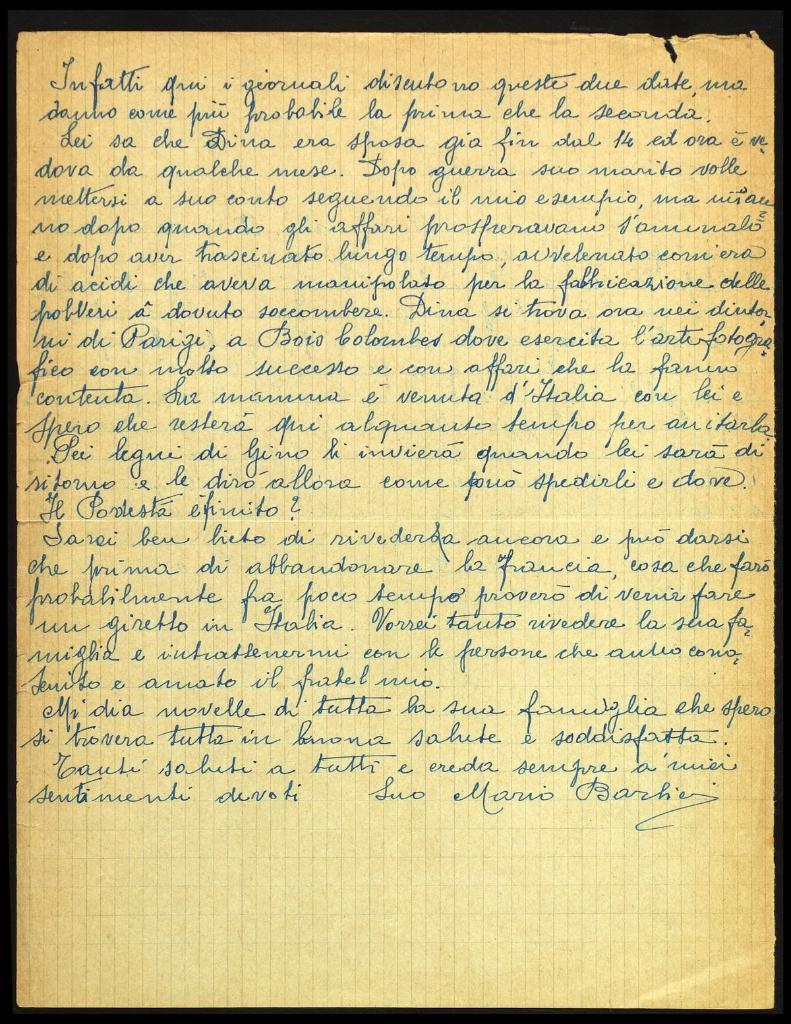 Infatti qui i giornali discutono queste due date, ma
danno come più probabile la prima che la seconda.
Lei sa che Dina era sposa già fin dal 14 ed ora è ve-
dova da qualche mese. Dopo guerra suo marito volle
mettersi a suo conto seguendo il mio esempio, ma
no dopo quando gli affari prosperavano s'ammalò
e dopo aver trascinato lungo tempo, avvelenato com'era
di acidi che aveva manipolato per la fabbricazione delle
polveri à dovuto soccombere. Dina si trova ora nei dintor-
ni di Parigi, a Bois Colombes dove esercita l'arte fotogra-
fico con molto successo e con affari che la fanno
contenta. Sua mamma è venuta d'Italia con lei e
spero che resterà qui alquanto tempo per aiutarla
Dei legni di Gino li invierà quando lei sarà di
ritorno e le dirò allora come può spedirli e dove.
Il Podestà è finito?
Sarei ben lieto di rivederla ancora e può darsi
che prima di abbandonare la Francia, cosa che farò
probabilmente fra poco tempo proverò di venir fare
un giretto in Italia. Vorrei tanto rivedere la sua fa-
miglia e intrattenermi con le persone che anno cono-
sciuto e amato il fratel mio.
Mi dia novelle di tutta la sua famiglia che spero
si troverà tutta in buona salute e soddisfatta.
Tanti saluti a tutti e creda sempre a' miei
sentimenti devoti Suo Mario Barbieri